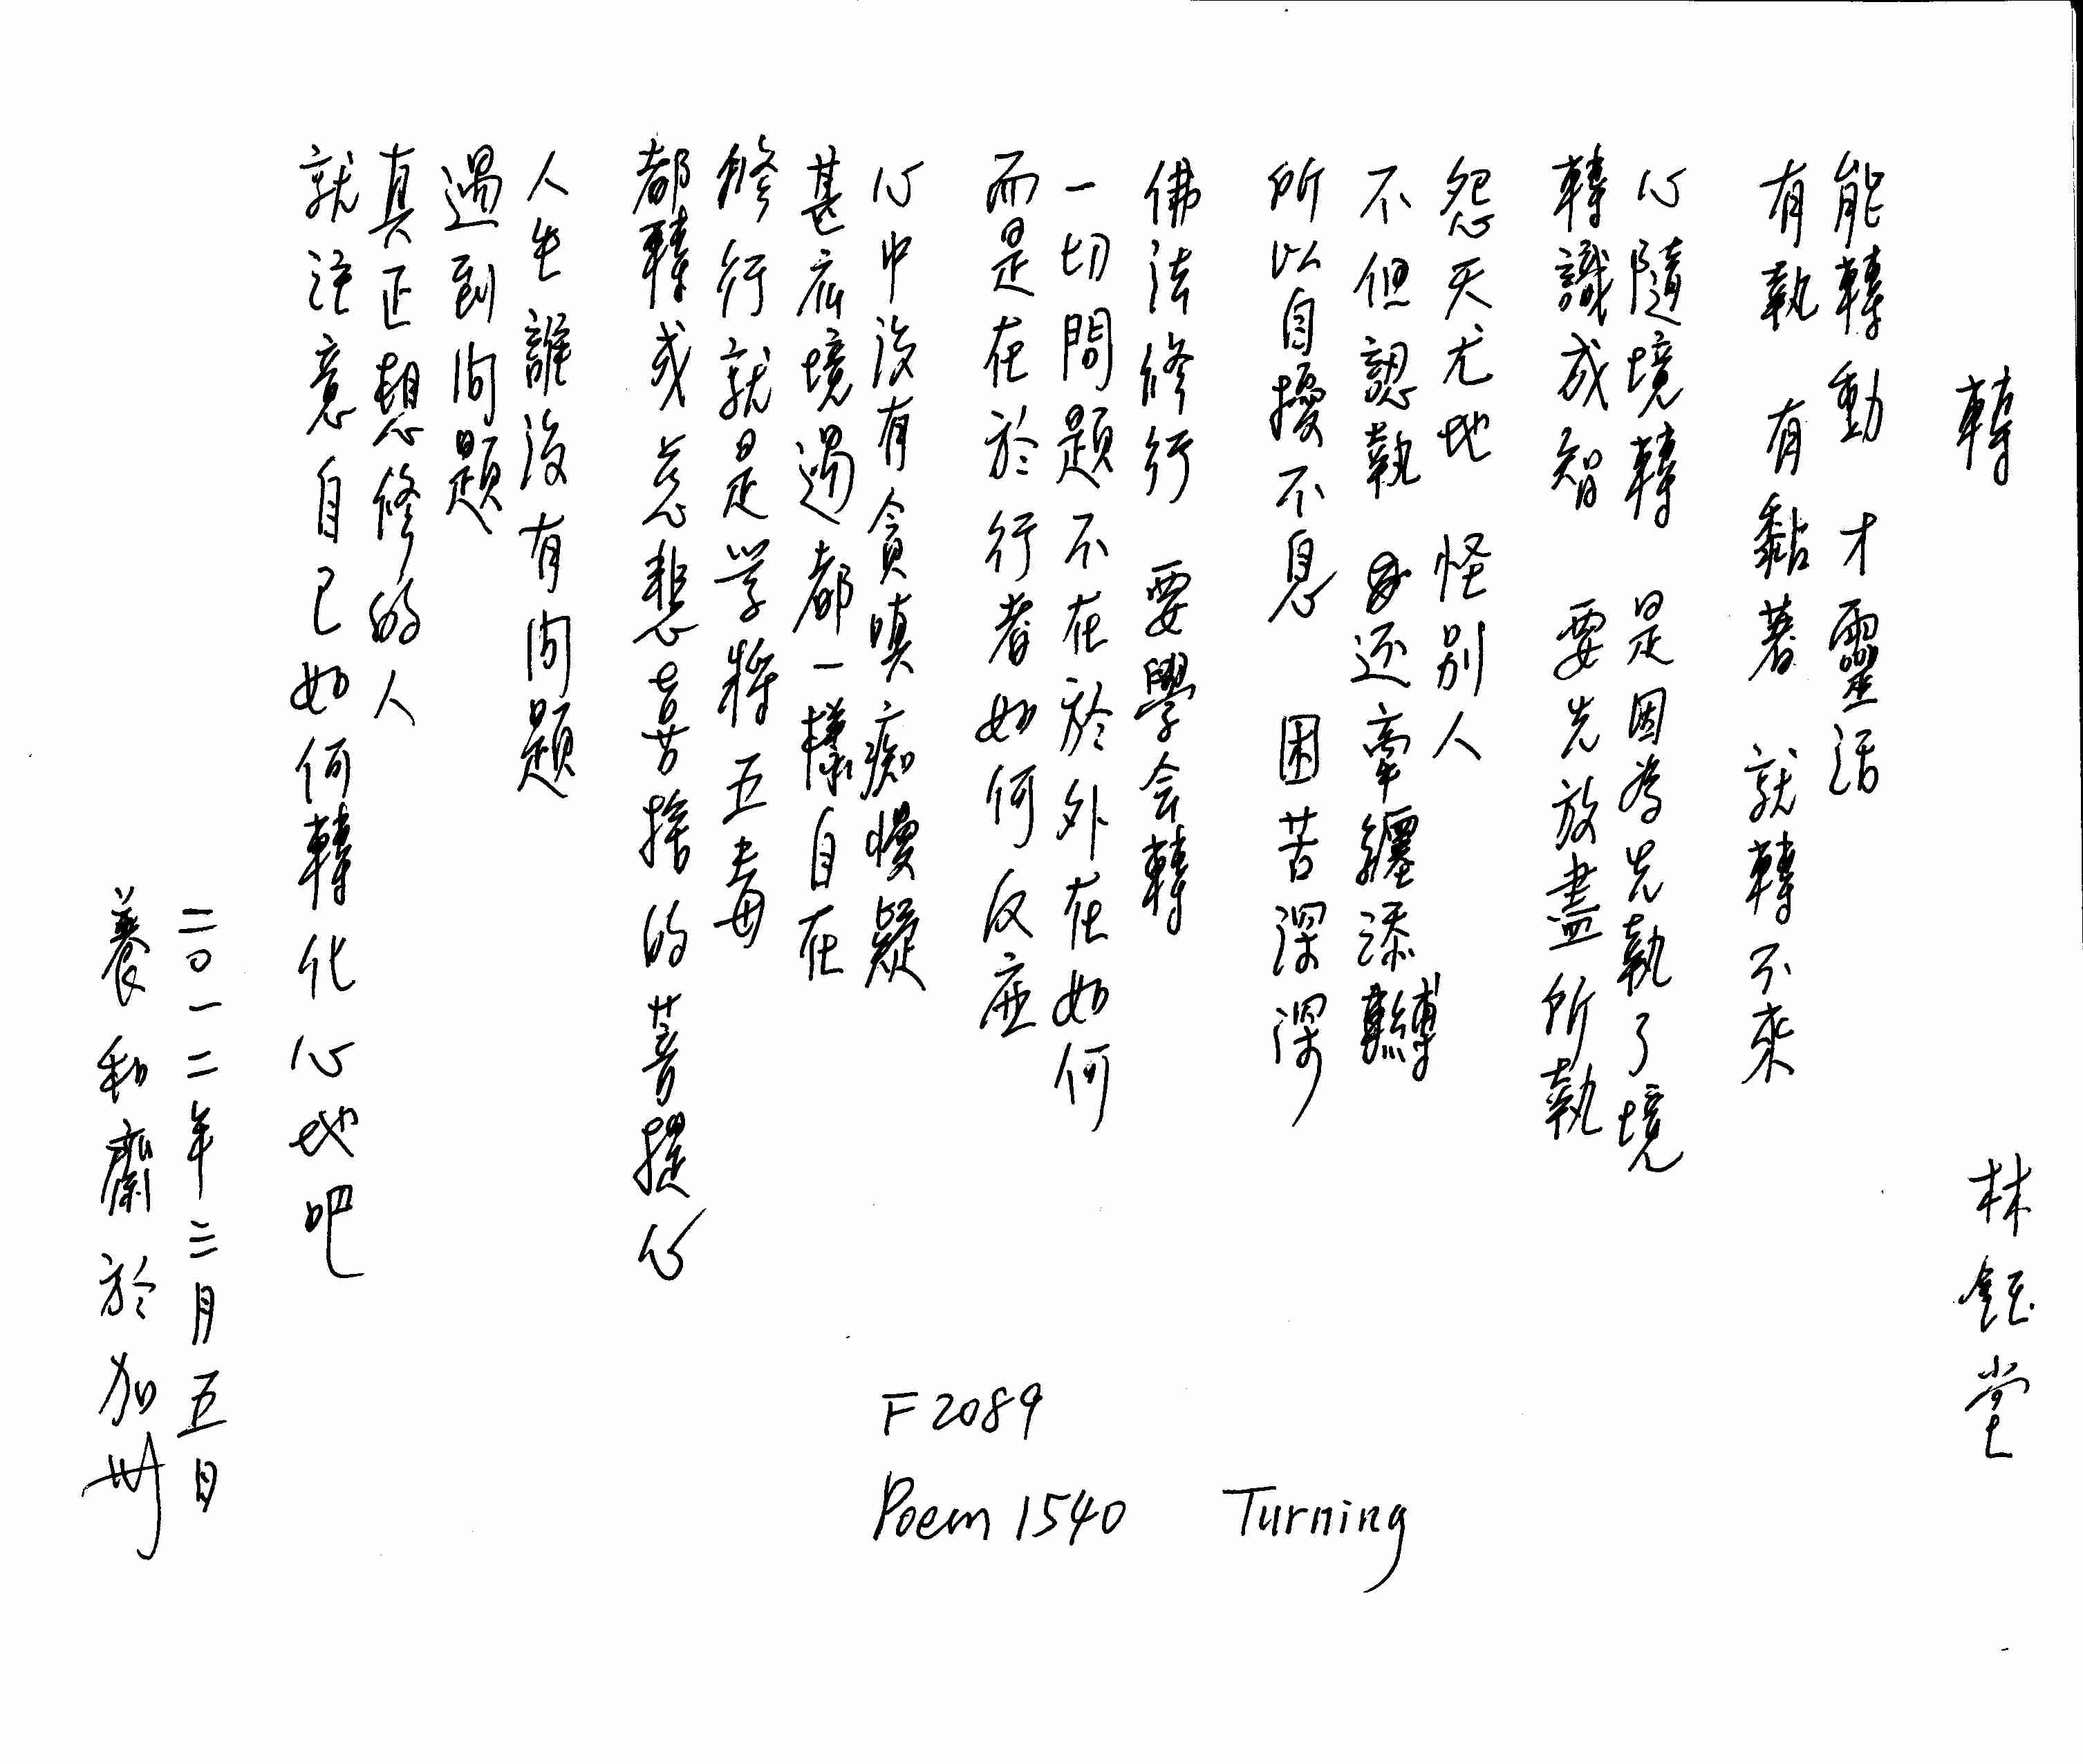 轉
林鈺堂
能轉動 才靈活
有執 有黏著 就轉不來
心隨境轉 是因為先執了境
轉識成智 要先放盡所執
怨天尤地 怪別人
不但認執 還牽纏添縛
所以自擾不息 困苦深深
佛法修行 要學会轉
一切問題不在於外在如何
而是在於行者如何反应
心中沒有貪嗔痴慢疑
甚麼境遇都一樣自在
修行就是学將五毒
都轉成慈悲喜捨的菩提心
人生誰沒有问题
遇到问题
真正想修的人
就注意自己如何轉化心地吧
二〇一二年三月五日
養和齋於加州
F2089
Poem 1540 Turning